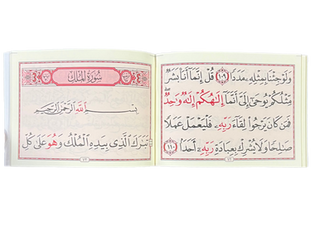 وَلَوْ جِئْنَا بِمِثْلِهِ مَدَدًا ١٠٩ قُلْ إِنَّمَا أَنَا بَشَرٌ
مِّثْلُكُمْ يُوحَىٰ إِلَيَّ أَنَّمَا إِلَٰهُكُمْ إِلَٰهٌ وَٰحِدٌ
فَمَن كَانَ يَرْجُوا لِقَاءَ رَبِّهِ فَلْيَعْمَلْ عَمَلًا
صَٰلِحًا وَلَا يُشْرِكْ بِعِبَادَةِ رَبِّهِ أَحَدًا ١١٠
سُورَةُ الْمُلْكِ
بِسْمِ اللَّهِ الرَّحْمَٰنِ الرَّحِيمِ
تَبَٰرَكَ الَّذِي بِيَدِهِ الْمُلْكُ وَهُوَ عَلَىٰ كُلِّ